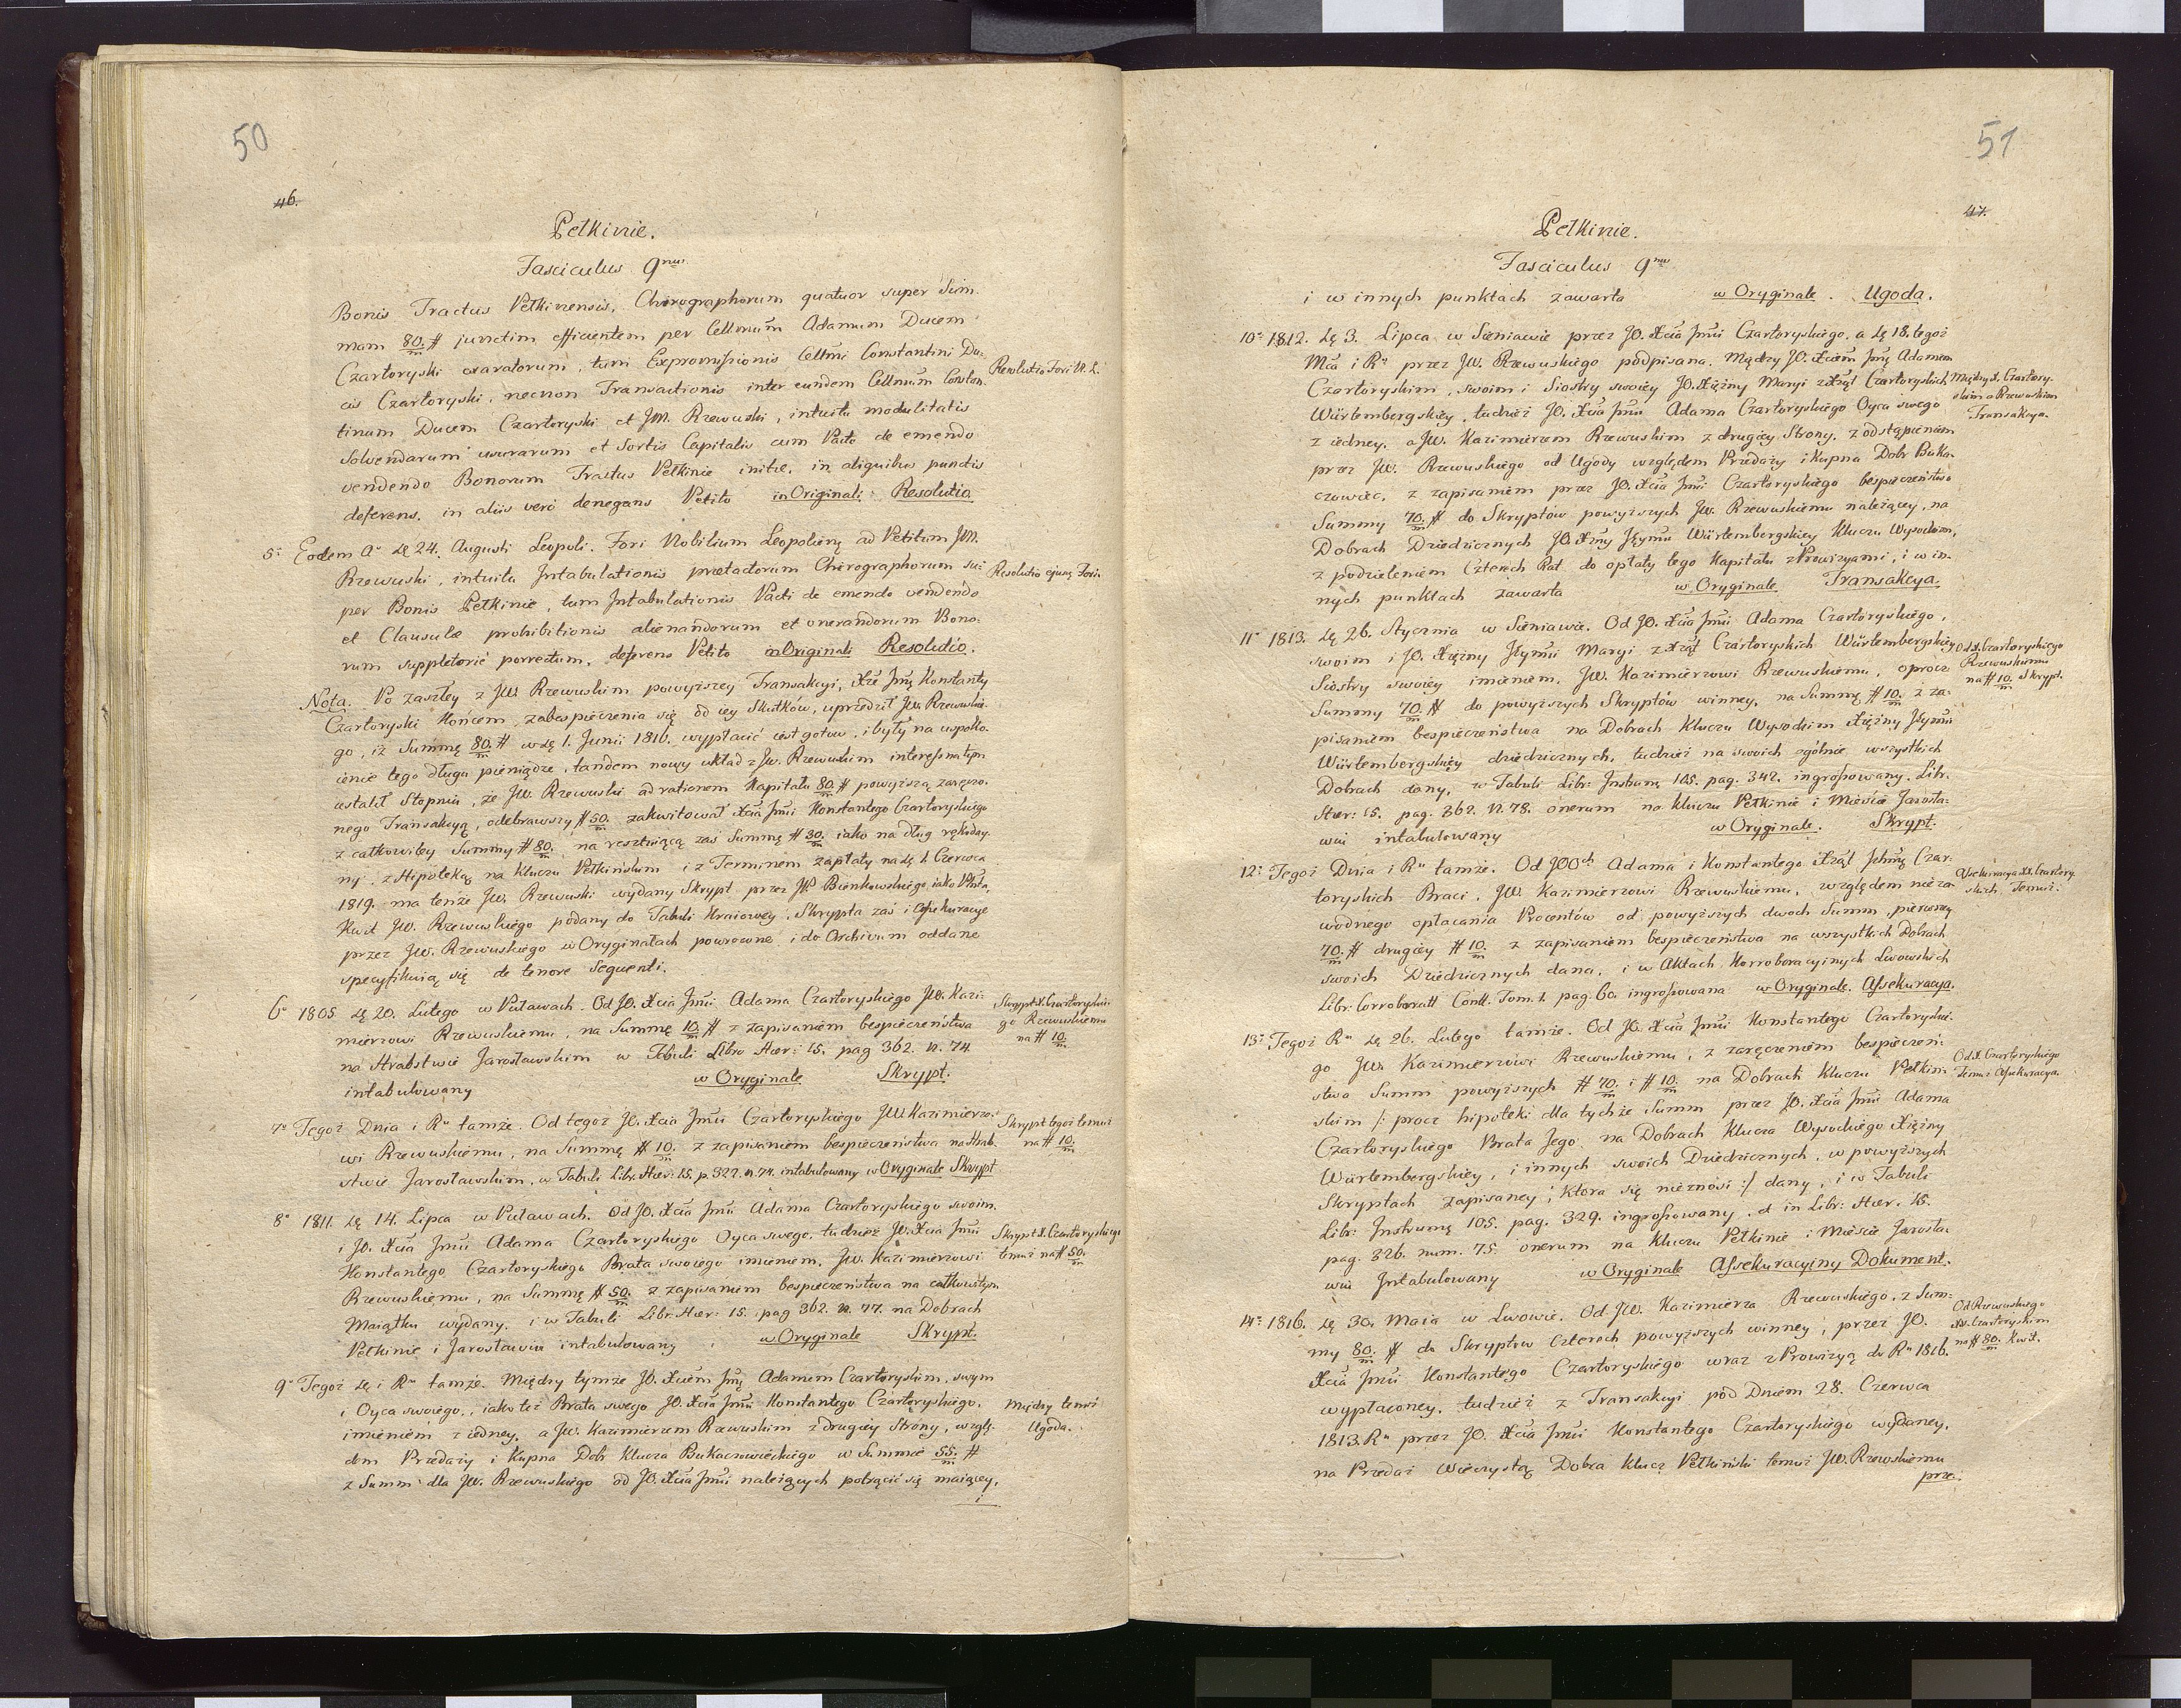 50
46.
Pełkinie.
Fasciculus 9nus
Bonis Tractus Pełkinensis, Chirographorum quatuor super Sum-
mam 80./m # junctim efficientem per Cellmum Adamum Ducem
Czartoryski exaratorum, tum Expromissionis Cellmi Constantini Du-
cis Czartoryski, necnon Transactionis inter eundem Cellmum Constan-
tinum Ducem Czartoryski, et JM. Rzewuski, intuitu modalitatis
Solvendarum usurarum et Sortis Capitalis cum Pacto de emendo
vendendo Bonorum Tractus Pełkinie initæ, in aliquibus punctis
deferens, in aliis vero denegans Petito in Originali Resolutio.
Resolutio Fori N. L.
5o Eodem Ao dę 24. Augusti Leopoli. Fori Nobilium Leopolieñ ad Petitum JM.
Rzewuski, intuitu Intabulationis prætactorum Chirographorum su-
per Bonis Pełkinie, tum Intabulationis Pacti de emendo vendendo
et Clausulæ prohibitionis alienandorum et onerandorum Bono-
rum suppletorie porrectum, deferens Petito in Originali Resolutio.
Resolutio ejusq Fori.
Nota. Po zaszłey z JW. Rzewuskim powyższey Transakcyi, Xże Jmę Konstanty
Czartoryski Końcem zabespieczenia się od iey Skutków, uprzedził JW. Rzewuskie-
go, iż Summę 80./m # w dę 1. Junii 1816. wypłacić iest gotow, i były na uspoko-
ienie tego długu pieniądze, tandem nowy układ z JW. Rzewuskim interess na tym
ustalił Stopniu, że JW. Rzewuski ad rationem Kapitału 80./m # powyższą zaręczo-
nego Transakcyą, odebrawszy # 50./m zakwitował Xcia Jmći Konstantego Czartoryskiego
z całkowitey Summy # 80./m na resztuiącą zaś Summę # 30./m iako na dług rękoday-
ny, z Hipoteką na kluczu Pełkińskim i z Terminem zapłaty na dę 1. Czerwca
1819. ma tenże JW. Rzewuski wydany Skrypt przez JP. Bienkowskiego iako Plnta,
Kwit JW. Rzewuskiego podany do Tabuli Kraiowey, Skrypta zaś i Assekuracye
przez JW. Rzewuskiego w Oryginałach powrocone i do Archivum oddane
specyfikuią się de tenore Sequenti.
6o 1805 dę 20. Lutego w Puławach. Od JO. Xcia Jmći Adama Czartoryskiego JW. Kazi-
mierzowi Rzewuskiemu, na Summę 10./m # z zapisaniem bespieczeństwa
na Hrabstwie Jarosławskim w Tabuli Libro Hær: 15. pag 362. n. 74
intabulowany w Oryginale Skrypt.
Skrypt X. Czartoryskie-
go Rzewuskiemu
na # 10./m
7o Tegoż Dnia i Ru tamże. Od tegoż JO. Xcia Jmći Czartoryskiego JW. Kazimierzo-
wi Rzewuskiemu, na Summę # 10./m z zapisaniem bespieczeństwa na Hrab-
stwie Jarosławskim, w Tabuli Libr. Hær: 15. p. 322. n. 74. intabulowany w Oryginale Skrypt
Skrypt tegoż temuż
na # 10./m
8o 1811. dę 14. Lipca w Puławach. Od JO. Xcia Jmći Adama Czartoryskiego swoim,
i JO. Xcia Jmći Adama Czartoryskiego Oyca swego, tudzież JO. Xcia Jmći
Konstantego Czartoryskiego Brata swoiego imieniem, JW. Kazimierzowi
Rzewuskiemu, na Summę # 50./m z zapisaniem bespieczeństwa na całkowitym
Maiątku wydany, i w Tabuli Libr. Hær: 15. pag 362. n. 77. na Dobrach
Pełkinie i Jarosławiu intabulowany w Oryginale Skrypt.
Skrypt X. Czartoryskiego
temuż na # 50./m
9o Tegoż dę i Ru tamże. Między tymże JO. Xciem Jmę Adamem Czartoryskim, swym
i Oyca swoiego, iako też Brata swego JO. Xcia Jmći Konstantego Czartoryskiego,
imieniem z iedney, a JW. Kazimierzem Rzewuskim z drugiey Strony, wzglę-
dem Przedaży i Kupna Dobr Klucza Bukaczowieckiego w Summie 55./m #
z Summ dla JW. Rzewuskiego od JO. Xcia Jmći należących potrącić się maiącey,
i
Między temiż
Ugoda.
51
47.
Pełkinie.
Fasciculus 9nus
i w innych punktach zawarta w Oryginale. Ugoda.
10o 1812. dę 3. Lipca w Sieniawie przez JO. Xcia Jmći Czartoryskiego, a dę 18. tegoż
Mca i Ru przez JW. Rzewuskiego podpisana. Między JO. Xciem Jmę Adamem
Czartoryskim, swoim i Siostry swoiey JO. Xiężny Maryi z Xżąt Czartoryskich
Würtembergskiey, tudzież JO. Xcia Jmći Adama Czartoryskiego Oyca swego
z iedney, a JW. Kazimierzem Rzewuskim z drugiey Strony, z odstąpieniem
przez JW. Rzewuskiego od Ugody względem Przedaży i Kupna Dobr Buka-
czowiec, z zapisaniem przez JO. Xcia Jmći Czartoryskiego bespieczeństwa
Summy 70./m # do Skryptów powyższych JW. Rzewuskiemu należącey, na
Dobrach Dziedzicznych JO. Xżny Jeymći Würtembergskiey Kluczu Wysockim,
z podzieleniem Czterech Rat do opłaty tego Kapitału z Prowizyami, i w in-
nych punktach zawarta w Oryginale Transakcya.
Między X. Czartory-
skim a Rzewuskim
Transakcya.
11o 1813. dę 26. Stycznia w Sieniawie. Od JO. Xcia Jmći Adama Czartoryskiego,
swoim i JO. Xiężny Jeymći Maryi z Xżąt Czartoryskich Würtembergskiey
Siostry swoiey imieniem, JW. Kazimierzowi Rzewuskiemu, oprocz
Summy 70./m # do powyższych Skryptów winney, na Summę # 10./m z za-
pisaniem bespieczeństwa na Dobrach Kluczu Wysockim Xiężny Jeymći
Würtembergskiey dziedzicznych, tudzież na swoich ogólnie wszystkich
Dobrach dany, w Tabuli Libr. Instrumę 105. pag. 342. ingrossowany, Libr.
Hær: 15. pag. 362. n. 78. onerum na kluczu Pełkinie i Mieście Jarosła-
wiu intabulowany w Oryginale. Skrypt.
Od X. Czartoryskiego
Rzewuskiemu
na # 10./m Skrypt.
12o Tegoż Dnia i Ru tamże. Od JOOch Adama i Konstantego Xżąt Jchmę Czar-
toryskich Braci, JW. Kazimierzowi Rzewuskiemu, względem nieza-
wodnego opłacania Procentów od powyższych dwoch Summ, pierwszey
70./m # drugiey # 10./m z zapisaniem bespieczeństwa na wszystkich Dobrach
swoich Dziedzicznych dana, i w Aktach Korroboracyinych Lwowskich
Libr: Corroboratt Contt. Tom. 1. pag. 60. ingrossowana w Oryginale. Assekuracya.
Assekuracya XX. Czartory-
skich Temuż.
13o Tegoż Ru dę 26. Lutego tamże. Od JO. Xcia Jmći Konstantego Czartoryskie-
go JW. Kazimierzowi Rzewuskiemu, z zaręczeniem bespieczeń-
stwa Summ powyższych # 70./m i # 10./m na Dobrach Kluczu Pełkiń-
skim /: procz hipoteki dla tychże Summ przez JO. Xcia Jmći Adama
Czartoryskiego Brata Jego na Dobrach Klucza Wysockiego Xiężny
Würtembergskiey, i innych swoich Dziedzicznych, w powyższych
Skryptach zapisaney, ktora się nieznosi :/ dany, i w Tabuli
Libr: Instrumę 105. pag. 329. ingrossowany, et in Libr: Hær. 15.
pag. 326. num. 75. onerum na Kluczu Pełkinie i Mieście Jarosła-
wiu Intabulowany w Oryginale Assekuracyiny Dokument.
Od X. Czartoryskiego
Temuż Assekuracya.
14o 1816. dę 30. Maia w Lwowie. Od JW. Kazimierza Rzewuskiego, z Sum-
my 80./m # do Skryptow Czterech powyższych winney, przez JO.
Xcia Jmći Konstantego Czartoryskiego wraz z Prowizyą do Ru 1816.
wypłaconey, tudzież z Transakcyi pod Dniem 28. Czerwca
1813. Ru przez JO. Xcia Jmći Konstantego Czartoryskiego wydaney,
na Przedaż Wieczystą Dobra klucz Pełkiński temuż JW. Rzewuskiemu
prze-
Od Rzewuskiego
XX. Czartoryskim
na # 80./m Kwit.